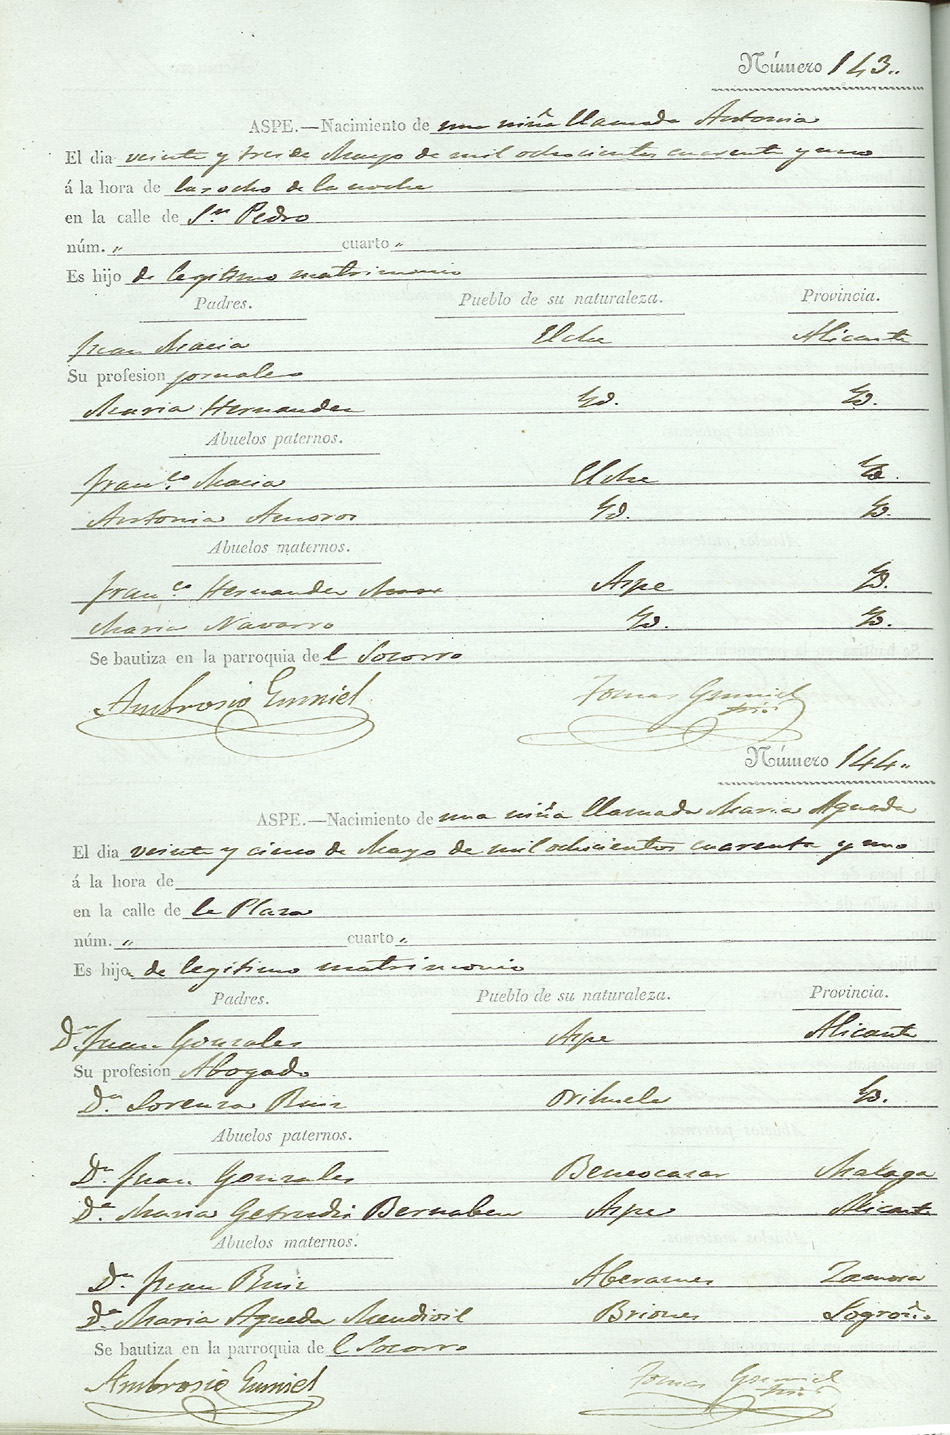 Número 143..
ASPE.—Nacimiento de una niña llamada Antonia
El dia veinte y tres de Mayo de mil ochocientos cuarenta y uno
á la hora de las ocho de la noche
en la calle de Sn Pedro
núm. „ cuarto „
Es hijo de legitimo matrimonio
Padres. Pueblo de su naturaleza. Provincia.
Juan Macia Elche Alicante
Su profesion jornalero
Maria Hernandez Yd. Yd.
Abuelos paternos.
Franco Macia Elche Yd.
Antonia Amoros Yd. Yd.
Abuelos maternos.
Franco Hernandez Aspe Yd.
Maria Navarro Yd. Yd.
Se bautiza en la parroquia del Socorro
Ambrosio Gumiel Tomas Gumiel
Número 144..
ASPE.—Nacimiento de una niña llamada Maria Agueda
El dia veinte y cinco de Mayo de mil ochicientos cuarenta y uno
á la hora de
en la calle de la Plaza
núm. „ cuarto „
Es hijo de legitimo matrimonio
Padres. Pueblo de su naturaleza. Provincia.
Dn Juan Gonzales Aspe Alicante
Su profesion Abogado
Da Lorenza Ruiz Orihuela Yd.
Abuelos paternos.
Dn Juan Gonzales Malaga
Da Maria Getrudis Bernabeu Aspe Alicante
Abuelos maternos.
Dn Juan Ruiz Zamora
Da Maria Agueda Mendivil Briones Logroño
Se bautiza en la parroquia del Socorro
Ambrosio Gumiel Tomas Gumiel